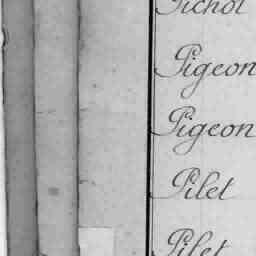 Pichot
Pigeon
Pigeon
Pilet
Pilet